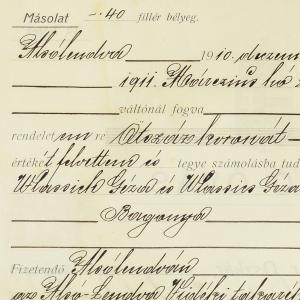 Másolat —.40 fillér bélyeg.
Alsólendva 1910. deczem
1911. Márczius hó
váltónál fogva
rendelet um re Ötszáz koronát
értéket felvettem és tegye számolásba tud
Wlassich Géza és Wlassics Géza
Bagonya
Fizetendő Alsólendván
az Alsó-Lendva Vidéki takarék